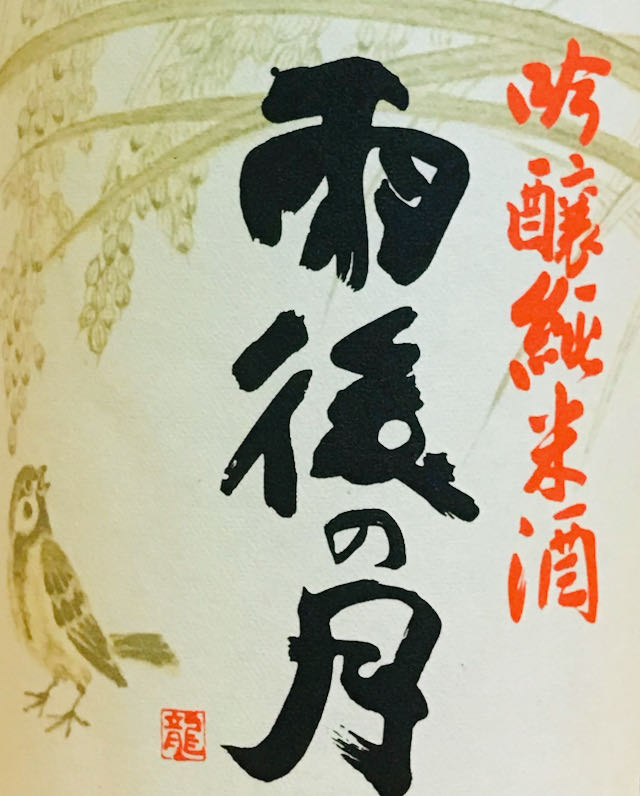 吟醸純米酒
雨後の月
龍